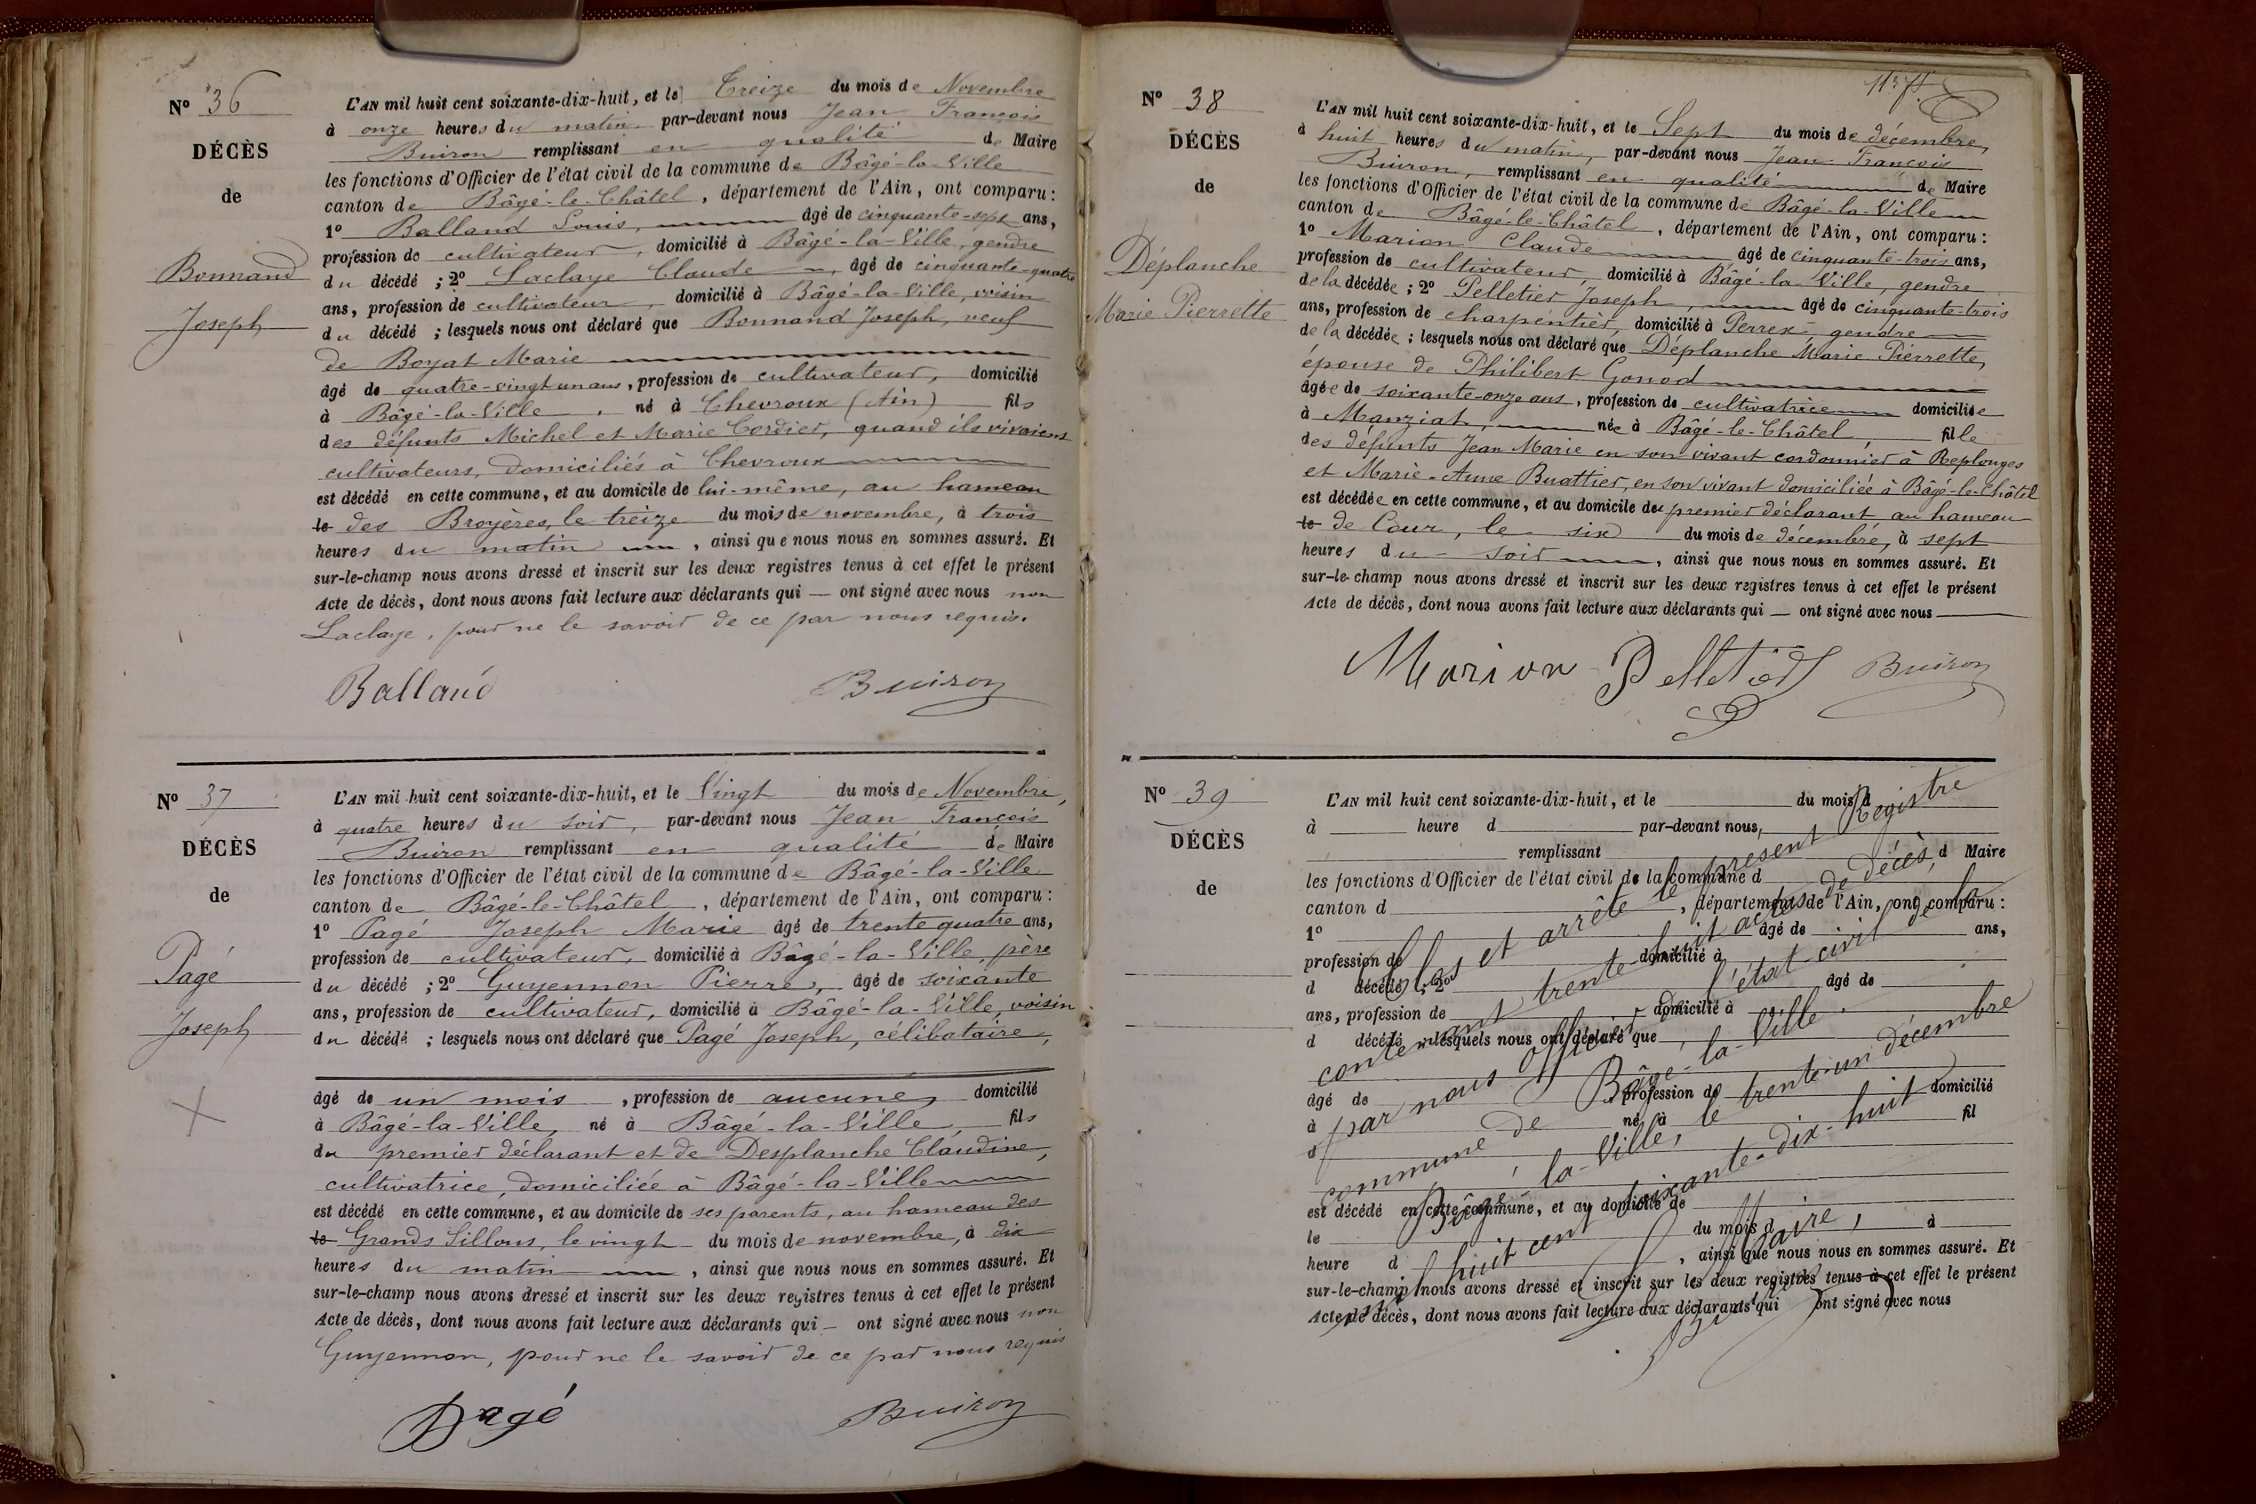 Nº 36
DÉCÈS
de
Bonnand
Joseph
L'AN mil huit cent soixante-dix-huit, et le Treize du mois de Novembre
à onze heures du matin par-devant nous Jean François
Buiron remplissant en qualité de Maire
les fonctions d'Officier de l'état civil de la commune de Bâgé-la-Ville
canton de Bâgé-le-Châtel, département de l'Ain, ont comparu :
1º Balland Louis, âgé de cinquante-sept ans,
profession de cultivateur, domicilié à Bâgé-la-Ville, gendre
du décédé ; 2º Laclaye Claude, âgé de cinquante-quatre
ans, profession de cultivateur, domicilié à Bâgé-la-Ville, voisin
du décédé ; lesquels nous ont déclaré que Bonnand Joseph, veuf
de Boyat Marie
âgé de quatre-vingt un ans, profession de cultivateur, domicilié
à Bâgé-la-Ville, né à Chevroux (Ain) fils
des défunts Michel et Marie Cordier, quand ils vivaient
cultivateurs, domiciliés à Chevroux
est décédé en cette commune, et au domicile de lui-même, au hameau
le des Broyères, le treize du mois de novembre, à trois
heures du matin, ainsi que nous nous en sommes assuré. Et
sur-le-champ nous avons dressé et inscrit sur les deux registres tenus à cet effet le présent
Acte de décès, dont nous avons fait lecture aux déclarants qui — ont signé avec nous non
Laclaye, pour ne le savoir de ce par nous requis.
Balland Buiron
Nº 37
DÉCÈS
de
Pagé
Joseph
L'AN mil huit cent soixante-dix-huit, et le Vingt du mois de Novembre,
à quatre heures du soir, par-devant nous Jean François
Buiron remplissant en qualité de Maire
les fonctions d'Officier de l'état civil de la commune de Bâgé-la-Ville
canton de Bâgé-le-Châtel, département de l'Ain, ont comparu :
1º Pagé Joseph Marie âgé de trente quatre ans,
profession de cultivateur, domicilié à Bâgé-la-Ville, père
du décédé ; 2º Guyennon Pierre, âgé de soixante
ans, profession de cultivateur, domicilié à Bâgé-la-Ville, voisin
du décédé ; lesquels nous ont déclaré que Pagé Joseph, célibataire,
âgé de un mois, profession de aucune, domicilié
à Bâgé-la-Ville, né à Bâgé-la-Ville, fils
du premier déclarant et de Desplanche Claudine,
cultivatrice, domiciliée à Bâgé-la-Ville
est décédé en cette commune, et au domicile de ses parents, au hameau des
le Grands Sillons, le vingt du mois de novembre, à dix
heures du matin, ainsi que nous nous en sommes assuré. Et
sur-le-champ nous avons dressé et inscrit sur les deux registres tenus à cet effet le présent
Acte de décès, dont nous avons fait lecture aux déclarants qui — ont signé avec nous non
Guyennon, pour ne le savoir de ce par nous requis
Pagé Buiron
Nº 38
DÉCÈS
de
Déplanche
Marie Pierrette
L'AN mil huit cent soixante-dix-huit, et le Sept du mois de décembre,
à huit heures du matin, par-devant nous Jean François
Buiron, remplissant en qualité de Maire
les fonctions d'Officier de l'état civil de la commune de Bâgé-la-Ville
canton de Bâgé-le-Châtel, département de l'Ain, ont comparu :
1º Marion Claude âgé de cinquante-trois ans,
profession de cultivateur, domicilié à Bâgé-la-Ville, gendre
de la décédée ; 2º Pelletier Joseph, âgé de cinquante-trois
ans, profession de charpentier, domicilié à Perrex, gendre
de la décédée ; lesquels nous ont déclaré que Déplanche Marie Pierrette,
épouse de Philibert Gonod
âgée de soixante-onze ans, profession de cultivatrice domiciliée
à Manziat, née à Bâgé-le-Châtel, fille
des défunts Jean Marie en son vivant cordonnier à Replonges
et Marie-Anne Buattier, en son vivant domiciliée à Bâgé-le-Châtel
est décédée en cette commune, et au domicile du premier déclarant au hameau
le de Cour, le six du mois de décembre, à sept
heures du soir, ainsi que nous nous en sommes assuré. Et
sur-le-champ nous avons dressé et inscrit sur les deux registres tenus à cet effet le présent
Acte de décès, dont nous avons fait lecture aux déclarants qui — ont signé avec nous
Marion Pelletier Buiron
Nº 39
DÉCÈS
de
L'AN mil huit cent soixante-dix-huit, et le du mois d
à heure d par-devant nous,
remplissant d Maire
les fonctions d'Officier de l'état civil de la commune d
canton d , département de l'Ain, ont comparu :
1º âgé de ans,
profession de domicilié à
d décédé ; 2º âgé de
ans, profession de domicilié à
d décédé ; lesquels nous ont déclaré que
âgé de , profession de domicilié
à né à fil
d
est décédé en cette commune, et au domicile de
le du mois d à
heure d , ainsi que nous nous en sommes assuré. Et
sur-le-champ nous avons dressé et inscrit sur les deux registres tenus à cet effet le présent
Acte de décès, dont nous avons fait lecture aux déclarants qui ont signé avec nous
Clos et arrêté le présent Registre
contenant trente-huit actes de décès,
par nous officier de l'état civil de la
commune de Bâgé-la-Ville.
Bâgé-la-Ville, le trente-un décembre
mil huit cent soixante-dix-huit
Le Maire,
Buiron